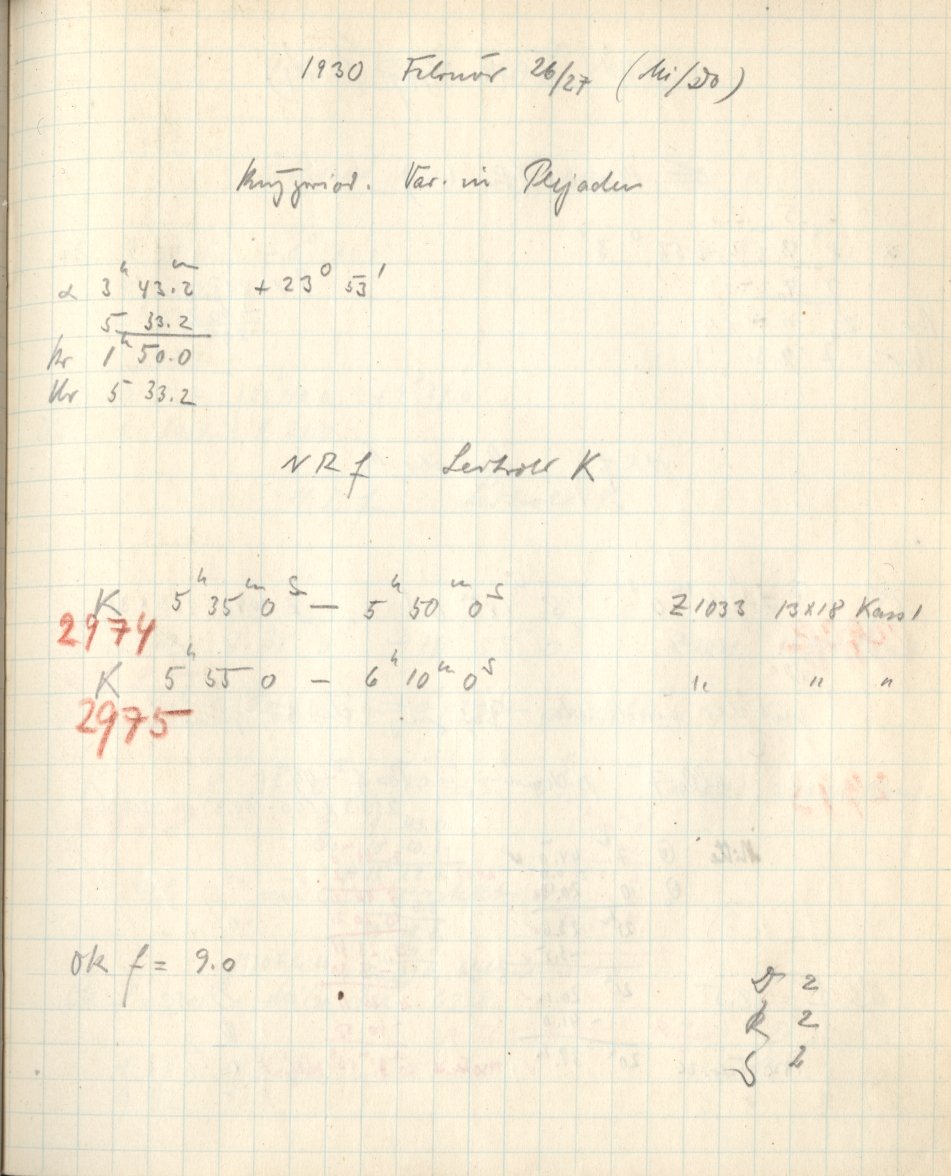 1930 Februar 26/27 (Mi/Do)
Kurzperiod. Var. in Plejaden
α 3ʰ 43.2ᵐ + 23° 53'
5 33.2
1ʰ 50.0
5 33.2
NRf K
K 5ʰ 35ᵐ 0ˢ — 5ʰ 50ᵐ 0ˢ Z1033 13x18 Kass 1
2974
K 5ʰ 55 0 — 6ʰ 10ᵐ 0ˢ " " "
2975
Ok f = 9.0
D 2
R 2
S 2